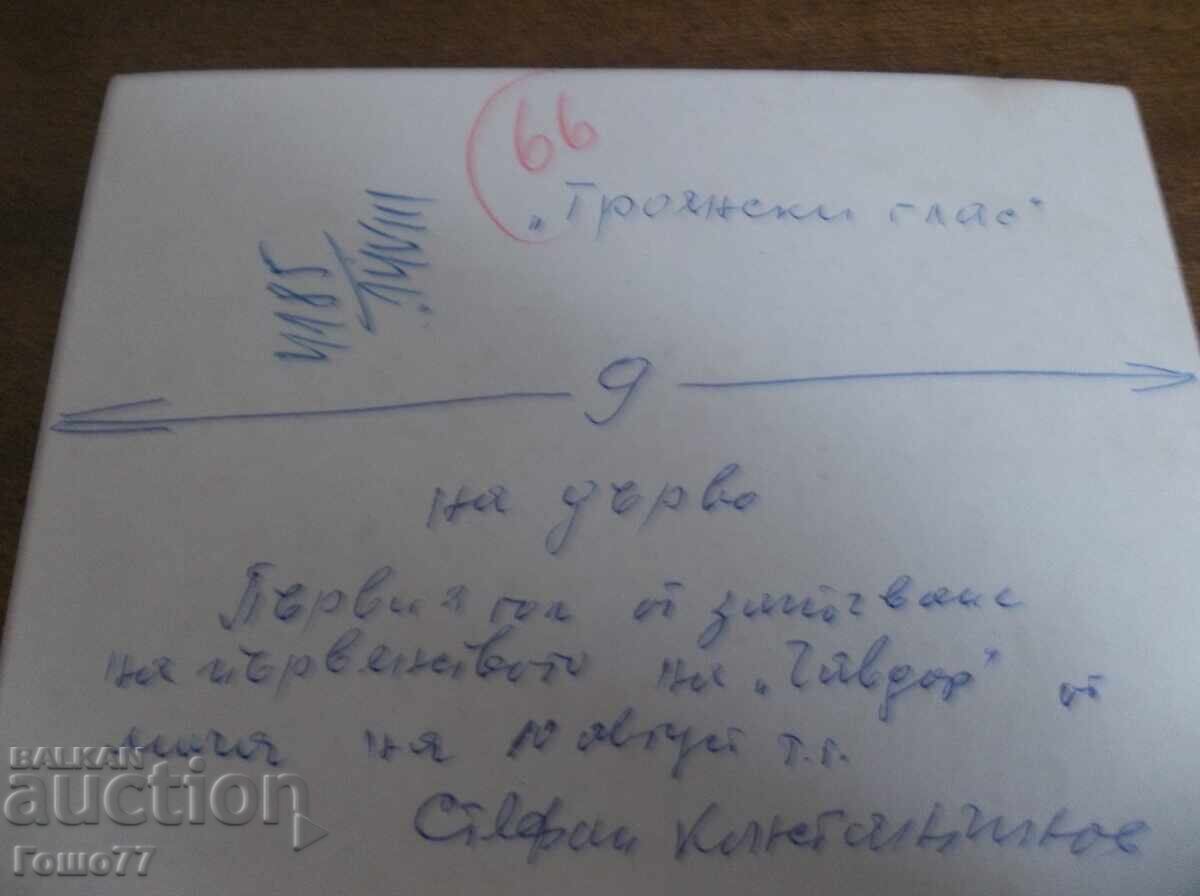 66
„Троянски глас"
4185
← 9 →
на дърво
Първия гол от започване
на първенството на „Чавдар" от
мача на 10 август т.г.
Стефан Константинов
BALKAN
auction
Гошо77